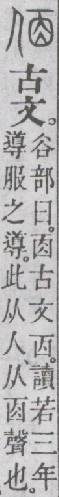 𠈇
古文。
谷部曰。𠀬古文㐁。讀若三年
導服之導。此从人、从𠀬聲也。